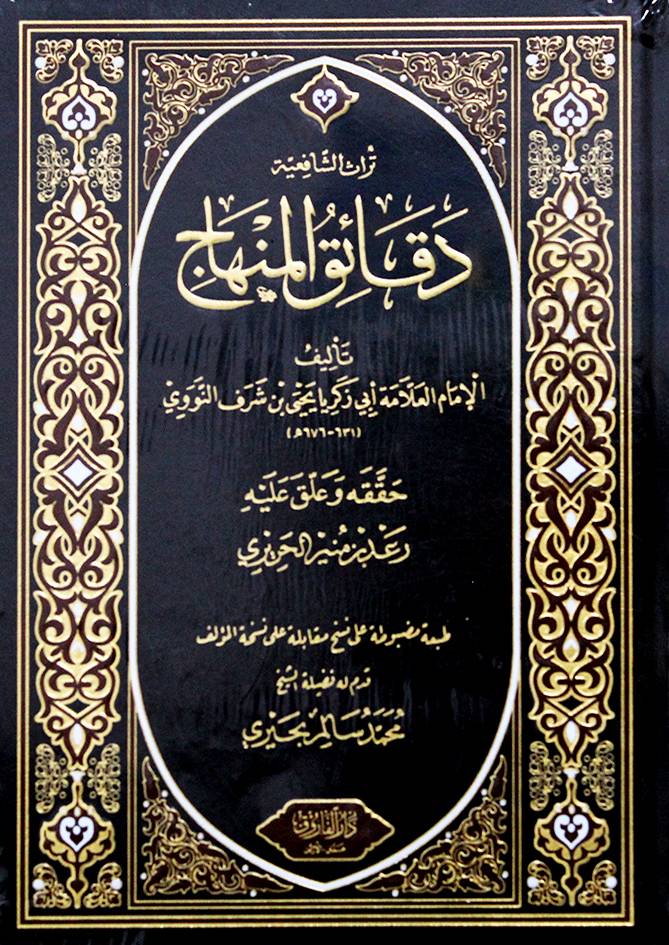 تُراث الشَّافِعِيَّة
دَقَائِقُ المِنْهَاجِ
تَأْلِيفُ
الإِمَام العَلَّامَة أَبِي زَكَرِيَّا يَحْيَى بْنِ شَرَفِ النَّوَوِيِّ
(٦٣١-٦٧٦ه)
حَقَّقَه وَعَلَّقَ عَلَيْهِ
رَعْد بن مُنير الحَرِيرِي
طبعة مضبوطة على نسخ مقابلة على نسخة المؤلف
قدم له فضيلة الشيخ
مُحَمَّد سَالِم بحَيرِي
دَارُ الفَارُوق
عمان - الأردن